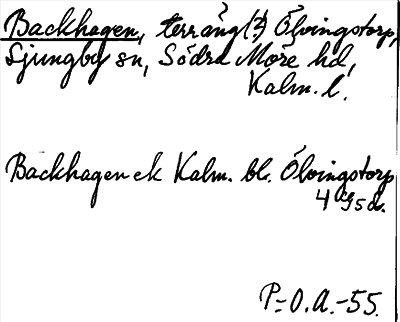 Backhagen, terräng(?) Ölvingstorp,
Ljungby sn, Södra Möre hd,
Kalm. l.
Backhagen ek Kalm. bl. Ölvingstorp
4
P-O.A.-55.